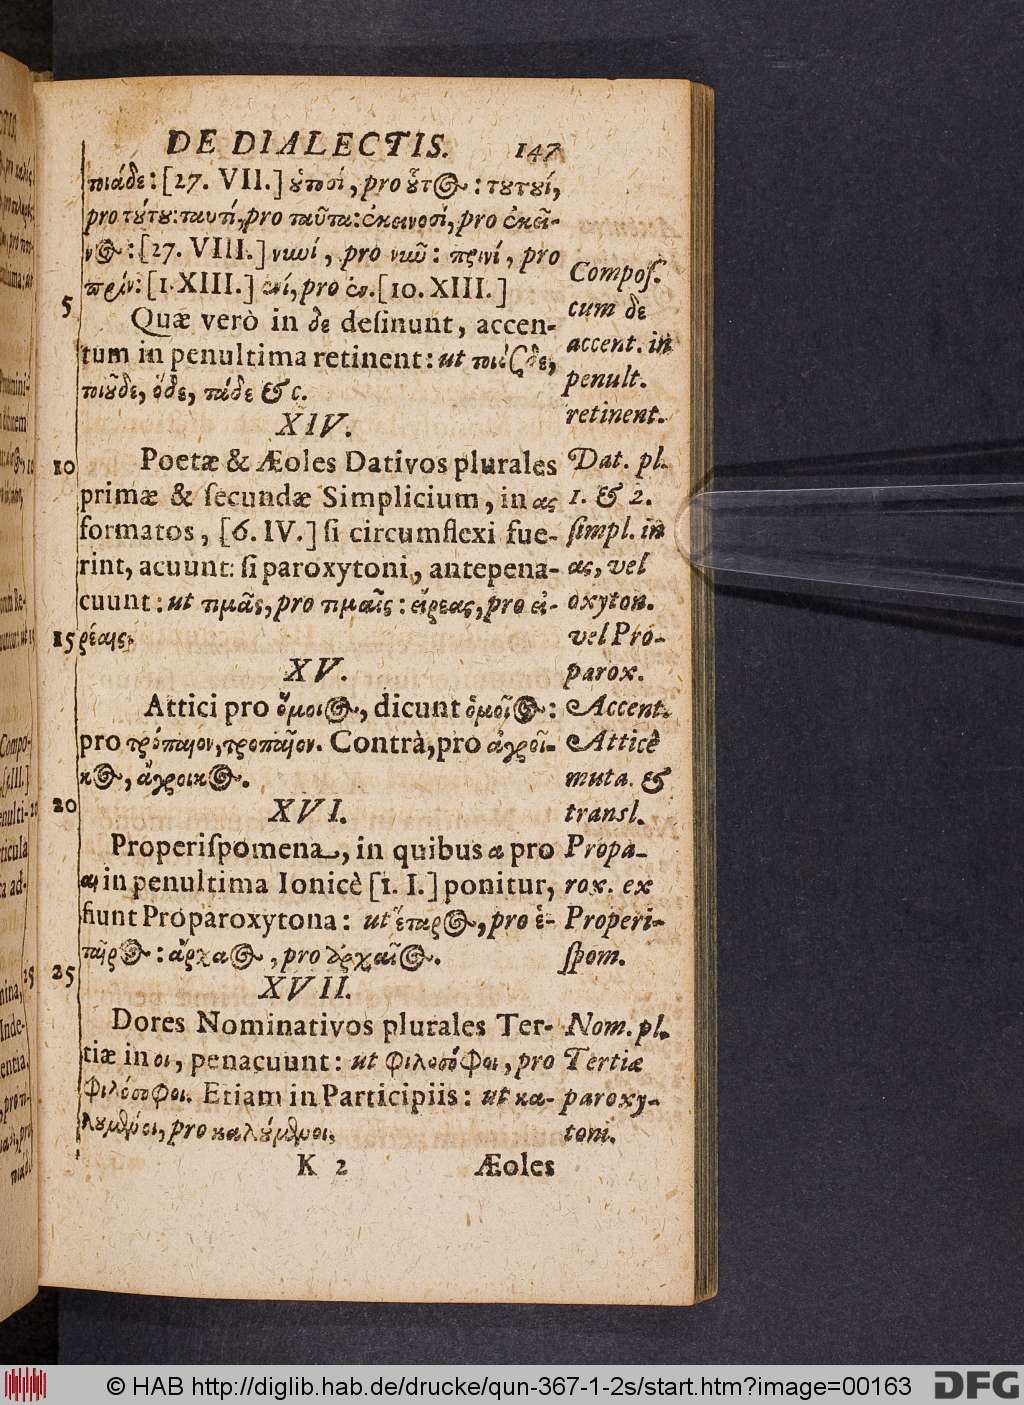 DE DIALECTIS. 147
ποιάδε: [27. VII.] ὑτοσί, pro ὗτος: τυτυί,
pro τύτυ: ταυτί, pro ταῦτα: ἐκεινοσί, pro ἐκεῖ-
νος: [27. VIII.] νυνί, pro νῦν: πρινί, pro
πρίν: [1. XIII.] ἐνί, pro ἐν. [10. XIII.]
5
Quæ verò in δε deſinunt, accen-
tum in penultima retinent: ut
ποιοῦδε, ὅδε, τάδε &c.
Compoſ.
cum δε
accent. in
penult.
retinent.
XIV.
10 Poetæ & Æoles Dativos plurales
primæ & ſecundæ Simplicium, in ας
formatos, [6. IV.] ſi circumflexi fue-
rint, acuunt: ſi paroxytoni, antepena-
cuunt: ut τιμᾶς, pro τιμαῖς: εἴρεας, pro εἰ-
15 ρέαις.
Dat. pl.
1. & 2.
ſimpl. in
ας, vel
oxyton.
vel Pro-
parox.
XV.
Attici pro ὅμοιος, dicunt ὁμοῖος:
pro τρόπαιον, τροπαῖον. Contrà, pro ἀγροῖ-
κος, ἄγροικος.
Accent.
Atticè
muta. &
transl.
20 XVI.
Properiſpomena, in quibus α pro
αι in penultima Ionicè [1. I.] ponitur,
fiunt Proparoxytona: ut ἕταρος, pro ἑ-
ταῖρος: ἄρχαος, pro ἀρχαῖος.
Propa-
rox. ex
Properi-
ſpom.
25 XVII.
Dores Nominativos plurales Ter-
tiæ in οι, penacuunt: ut φιλοσόφοι, pro
φιλόσοφοι. Etiam in Participiis: ut κα-
λυμένοι, pro καλύμενοι.
Nom. pl.
Tertiæ
paroxy-
toni.
K 2 Æoles
© HAB http://diglib.hab.de/drucke/qun-367-1-2s/start.htm?image=00163 DFG